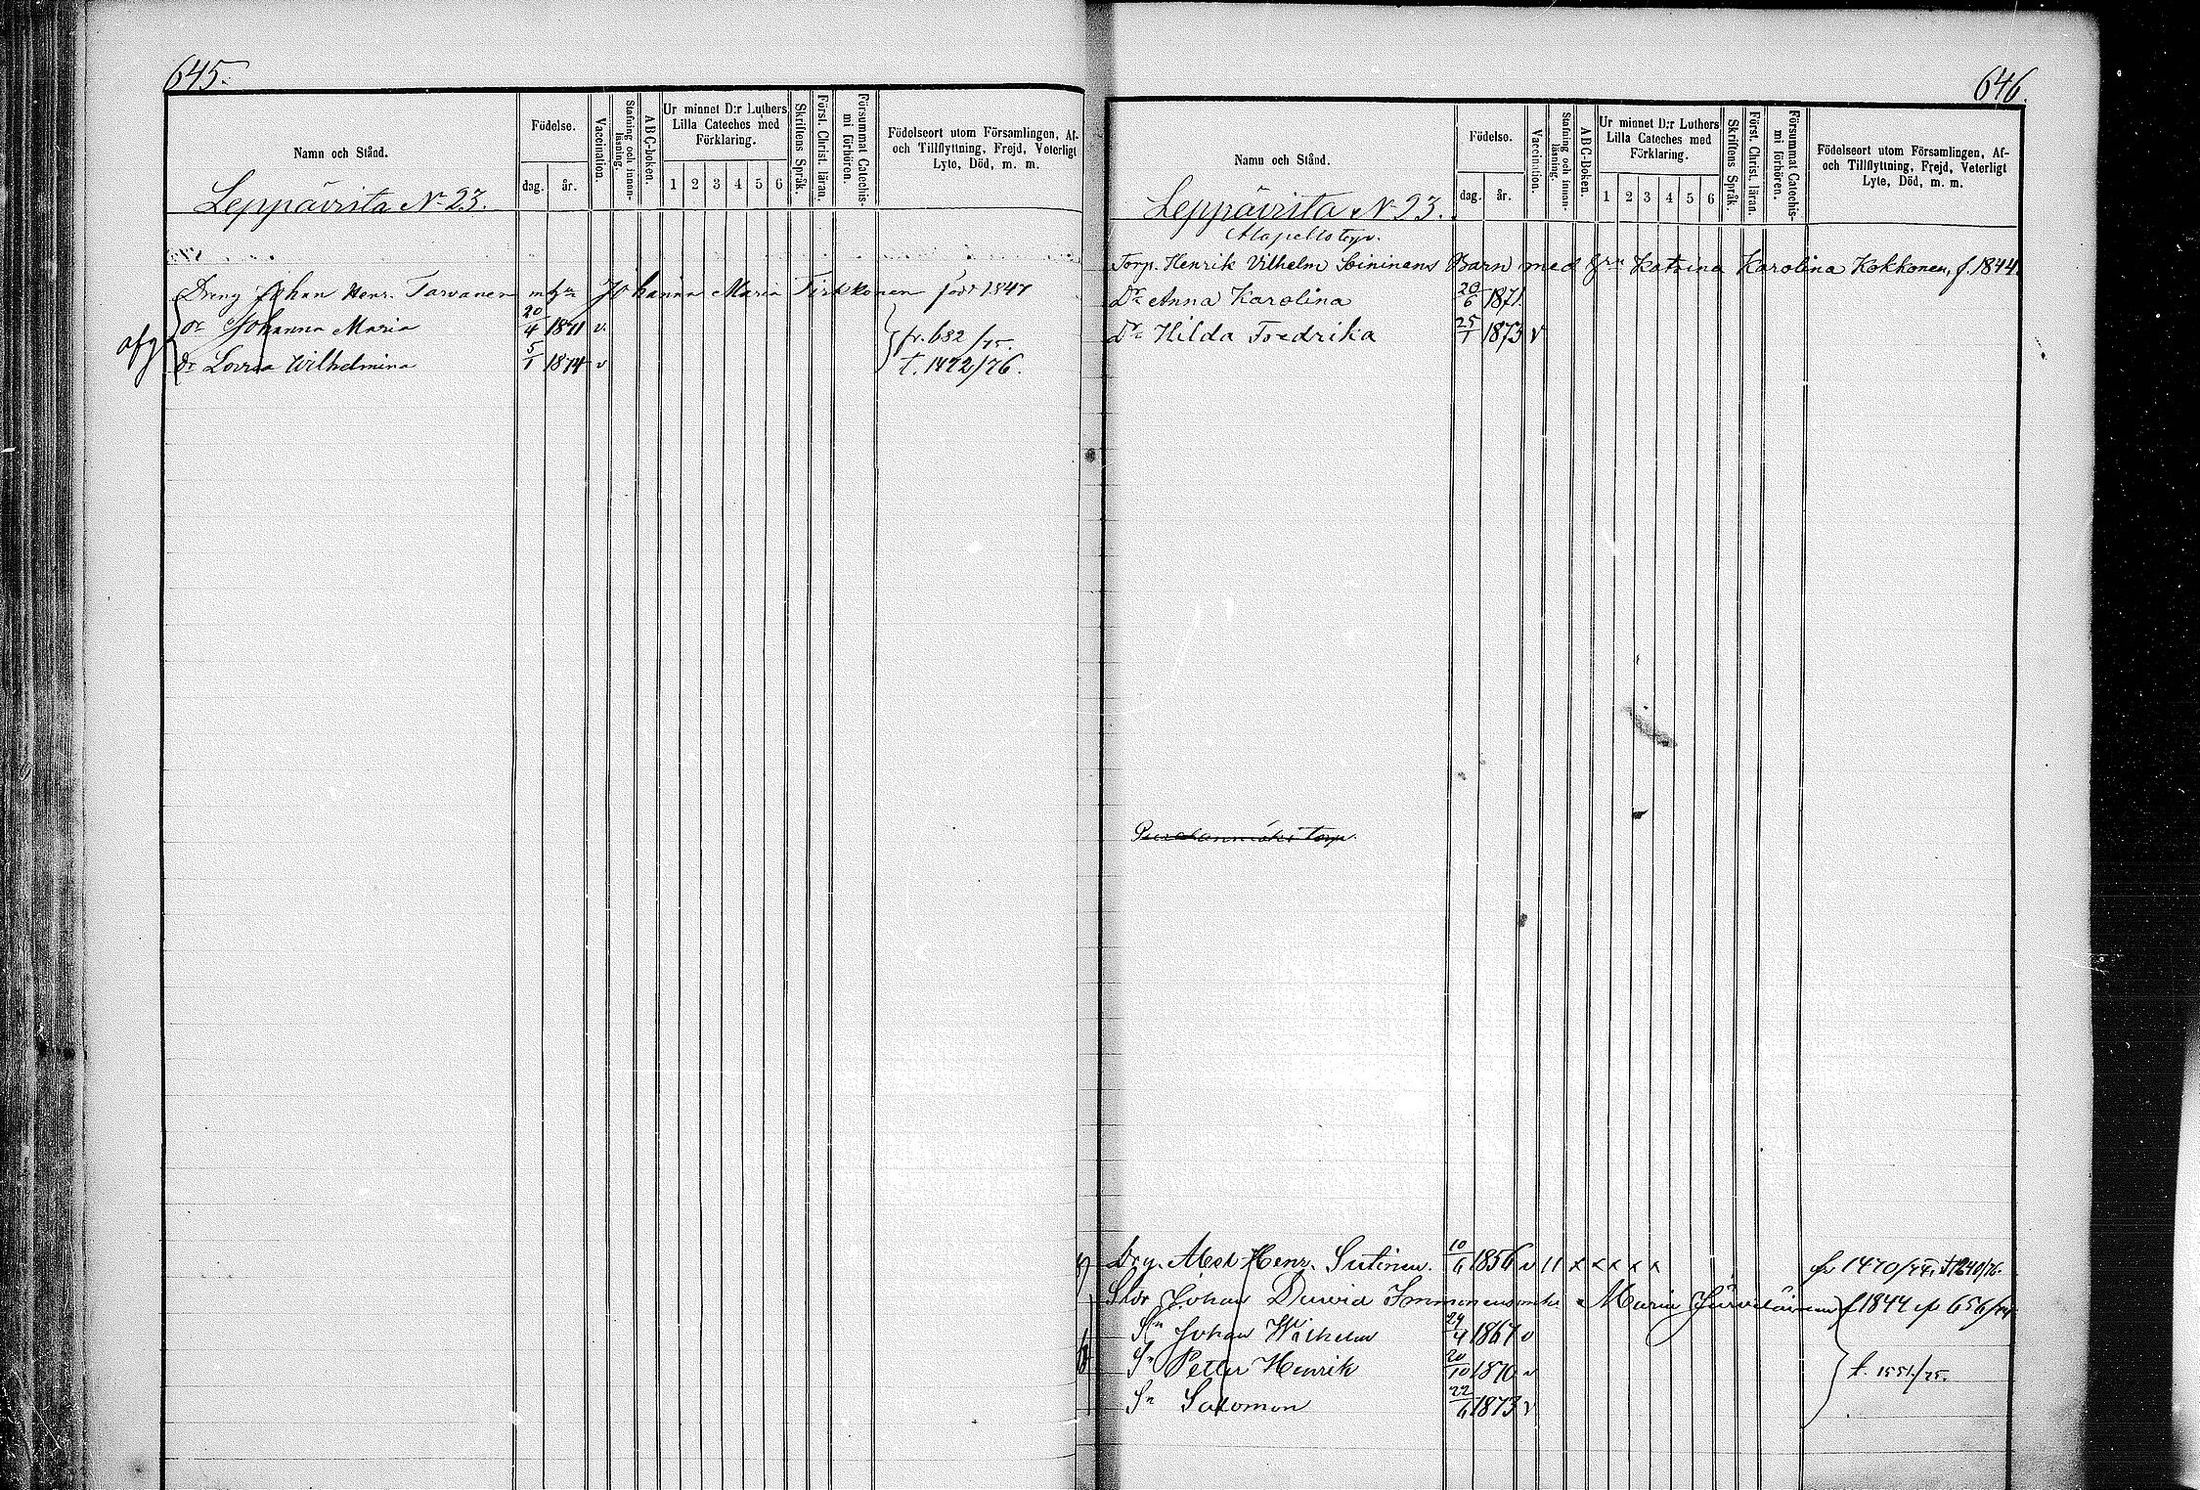 645.
Namn och Stånd.
Födelse.
dag. år.
Vaccination.
Stafning och innan-läsning.
ABC-boken.
Ur minnet D:r Luthers Lilla Cateches med Förklaring.
1 2 3 4 5 6
Skriftens Språk.
Först. Christ. läran.
Försummat Catechis-mi förhören.
Födelseort utom Församlingen, Af-
och Tillflyttning, Frejd, Veterligt
Lyte, Död, m. m.
Leppävirta No 23.
Dreng Johan Henr. Tarvanen m hu Johanna Maria Tirkkonen född 1847
afg
dr Johanna Maria 20/4 1871 v. fr. 682/75.
dr Lovisa Wilhelmina 5/1 1874 v t. 1472/76.
646.
Namn och Stånd.
Födelse.
dag. år.
Vaccination.
Stafning och innan-läsning.
ABC-Boken.
Ur minnet D:r Luthers Lilla Cateches med Förklaring.
1 2 3 4 5 6
Skriftens Språk.
Först. Christ. läran.
Försummat Catechis-mi förhören.
Födelseort utom Församlingen, Af-
och Tillflyttning, Frejd, Veterligt
Lyte, Död, m. m.
Leppävirta No 23.
Alapelto torp.
Torp. Henrik Vilhelm Soininens Barn med Katrina Karolina Kokkonen, f. 1844.
Dr Anna Karolina 20/6 1871
Dr Hilda Fredrika 25/1 1873 v
torp.
Drg. Abel Henr. Sutinen. 10/6 1856 v 11 x x x x x fr 1470/
Johan David Immonens enka Maria f 1844 fr 656/
Sn Johan Wilhelm 24/4 1867 v
Sn Petter Henrik 20/10 1870 v t. 1551/75.
Sn Salomon 22/6 1873 v